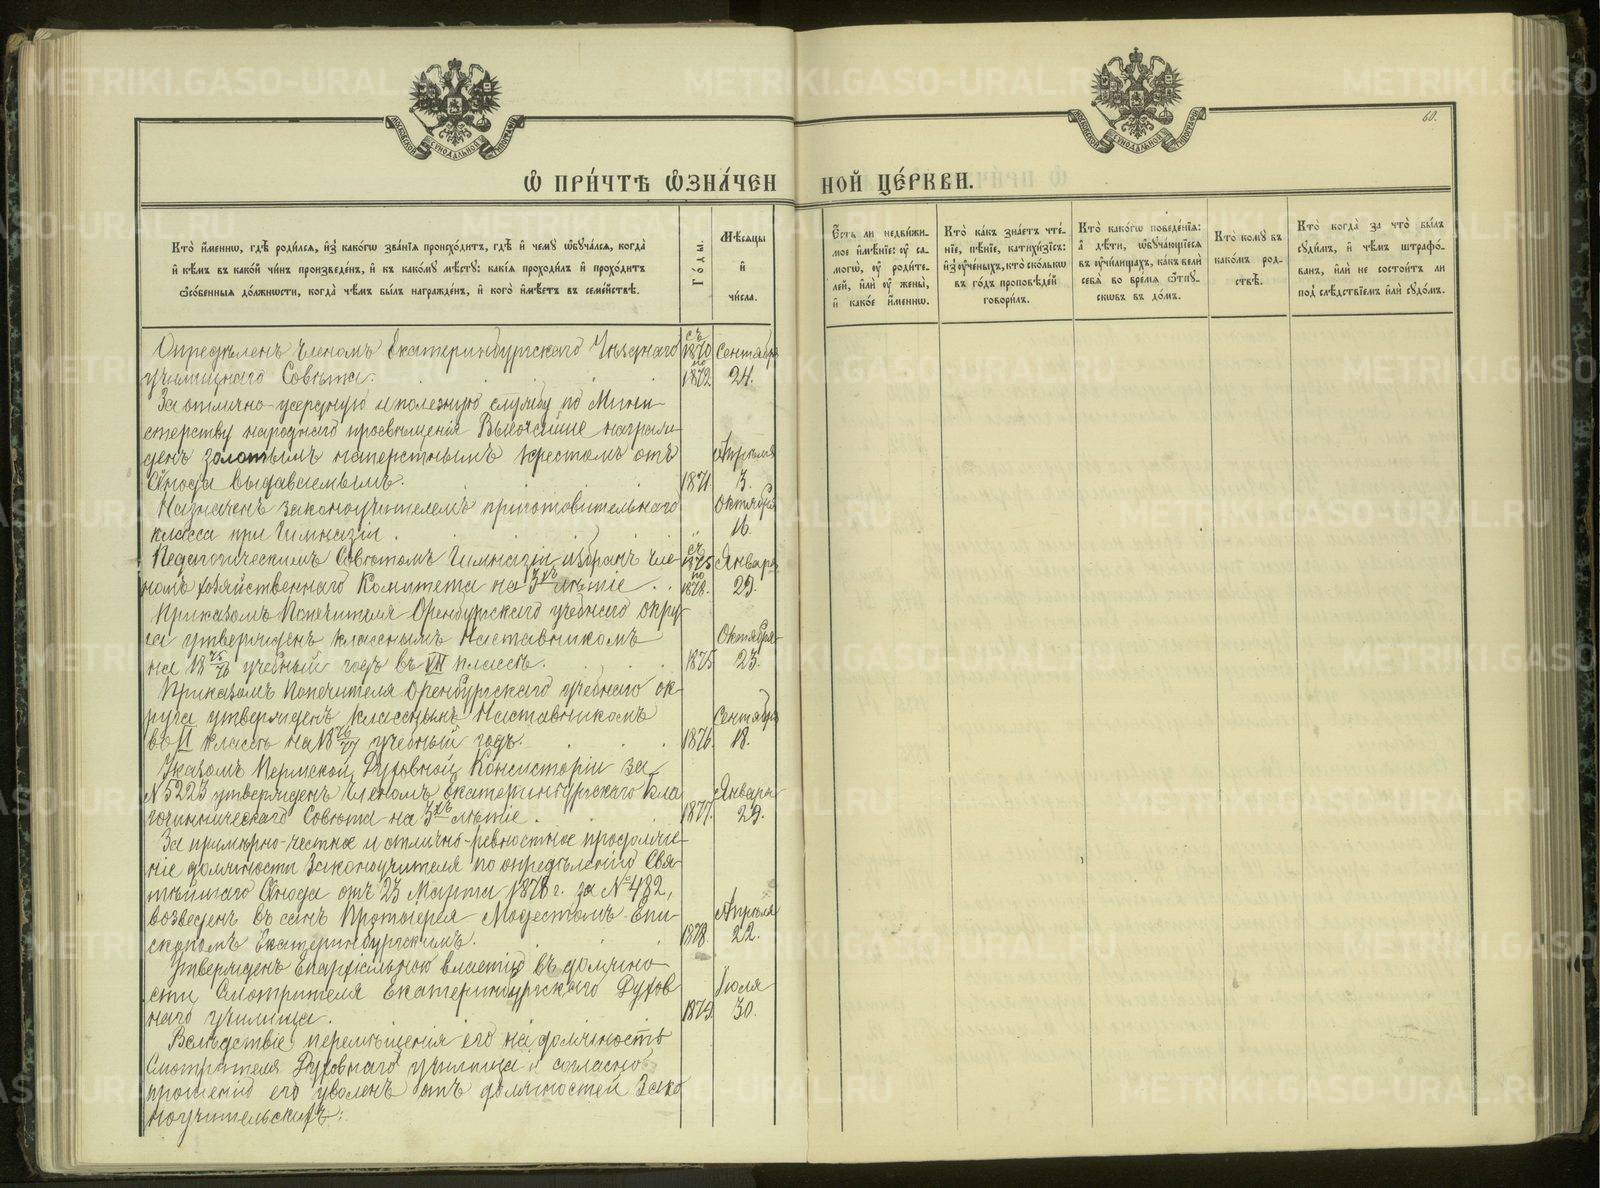 60.
МОСКОВСКОЙ СУНОДАЛЬНОЙ ТИПОГРАФІИ
МОСКОВСКОЙ СУНОДАЛЬНОЙ ТИПОГРАФІИ
Ѡ ПРИ́ЧТѢ Ѡ҆ЗНА́ЧЕННОЙ ЦЕ́РКВИ.
Кто̀ и҆́меннѡ, гдѣ̀ роди́лсѧ, и҆з̾ како́гѡ зва́нїѧ происхо́дитъ, гдѣ̀ и҆ чемꙋ̀ ѡ҆бꙋча́лсѧ, когда̀
и҆ кѣ́мъ въ како́й чи́нъ произведе́нъ, и҆ къ како́мꙋ мѣ́стꙋ: какі̑ѧ проходи́лъ и҆ прохо́дитъ
ѻ҆со́бенныѧ до́лжности, когда̀ чѣ́мъ бы́лъ награжде́нъ, и҆ кого̀ и҆мѣ́етъ въ семе́йствѣ.
Го́ды.
Мѣ́сѧцы
и҆
чи́сла.
Е҆́сть ли недви́жи-
мое и҆мѣ́нїе: ᲂу҆ са-
могѡ̀, ᲂу҆ роди́те-
лей, и҆лѝ ᲂу҆ жены̀,
и҆ како́е и҆́меннѡ.
Кто̀ ка́къ зна́етъ чте́-
нїе, пѣ́нїе, катихи́зїсъ:
и҆з̾ ᲂу҆че́ныхъ, кто̀ ско́лькѡ
въ го́дъ про́повѣдей
говори́лъ.
Кто̀ како́гѡ поведе́нїѧ:
а҆ дѣ́ти, ѡ҆бꙋча́ющїесѧ
въ ᲂу҆чи́лищахъ, ка́къ велѝ
себѧ̀ во вре́мѧ ѿпꙋ-
скѡвъ въ до́мъ.
Кто̀ комꙋ̀ въ
како́мъ род-
ствѣ̀.
Кто̀ когда̀ за что̀ бы́лъ
сꙋди́мъ, и҆ чѣ́мъ штрафо́-
ванъ, и҆лѝ не состои́тъ ли
под̾ слѣ́дствїемъ и҆лѝ сꙋдо́мъ.
Опредѣленъ членомъ Екатеринбургскаго Уѣзднаго съ 1870 Сентября
училищнаго Совѣта. по 1872 24.
За отлично-усердную и полезную службу по Мини-
стерству народнаго просвѣщенія Высочайше награж-
денъ золотымъ наперстнымъ крестомъ отъ Апрѣля
Сѵнода выдаваемымъ. 1871. 3.
Назначенъ законоучителемъ приготовительнаго Октября
класса при Гимназіи. 16.
Педагогическимъ Совѣтомъ Гимназіи избранъ чле- съ 1875 Января
номъ хозяйственнаго Комитета на 3хъ лѣтіе. по 1878. 29.
Приказомъ Попечителя Оренбургскаго учебнаго окру-
га утвержденъ класснымъ Наставникомъ Октября
на 18 75/76 учебный годъ въ VII классъ. 1875 23.
Приказомъ Попечителя Оренбургскаго учебнаго ок-
руга утвержденъ класснымъ Наставникомъ Сентября
въ VI классъ на 18 76/77 учебный годъ. 1876. 18.
Указомъ Пермской Духовной Консисторіи за
№ 5223 утвержденъ Членомъ Екатеринбургскаго Бла Января
гочинническаго Совѣта на 3хъ лѣтіе. 1877. 29.
За примѣрно-честное и отлично-ревностное продолже-
ніе должности Законоучителя по опредѣленію Свя-
тѣйшаго Сѵнода отъ 23 Марта 1878 г. за № 482,
возведенъ въ санъ Протоіерея Модестомъ Епи- Апрѣля
скопомъ Екатеринбургскимъ. 1878. 22.
Утвержденъ Епархіальною властію въ должно-
сти Смотрителя Екатеринбургскаго Духов Іюля
наго училища. 1879. 30.
Вслѣдствіе перемѣщенія его на должность
Смотрителя Духовнаго училища и согласно
прошенію его уволенъ отъ должностей Зако
ноучительскихъ:
METRIKI.GASO-URAL.RU